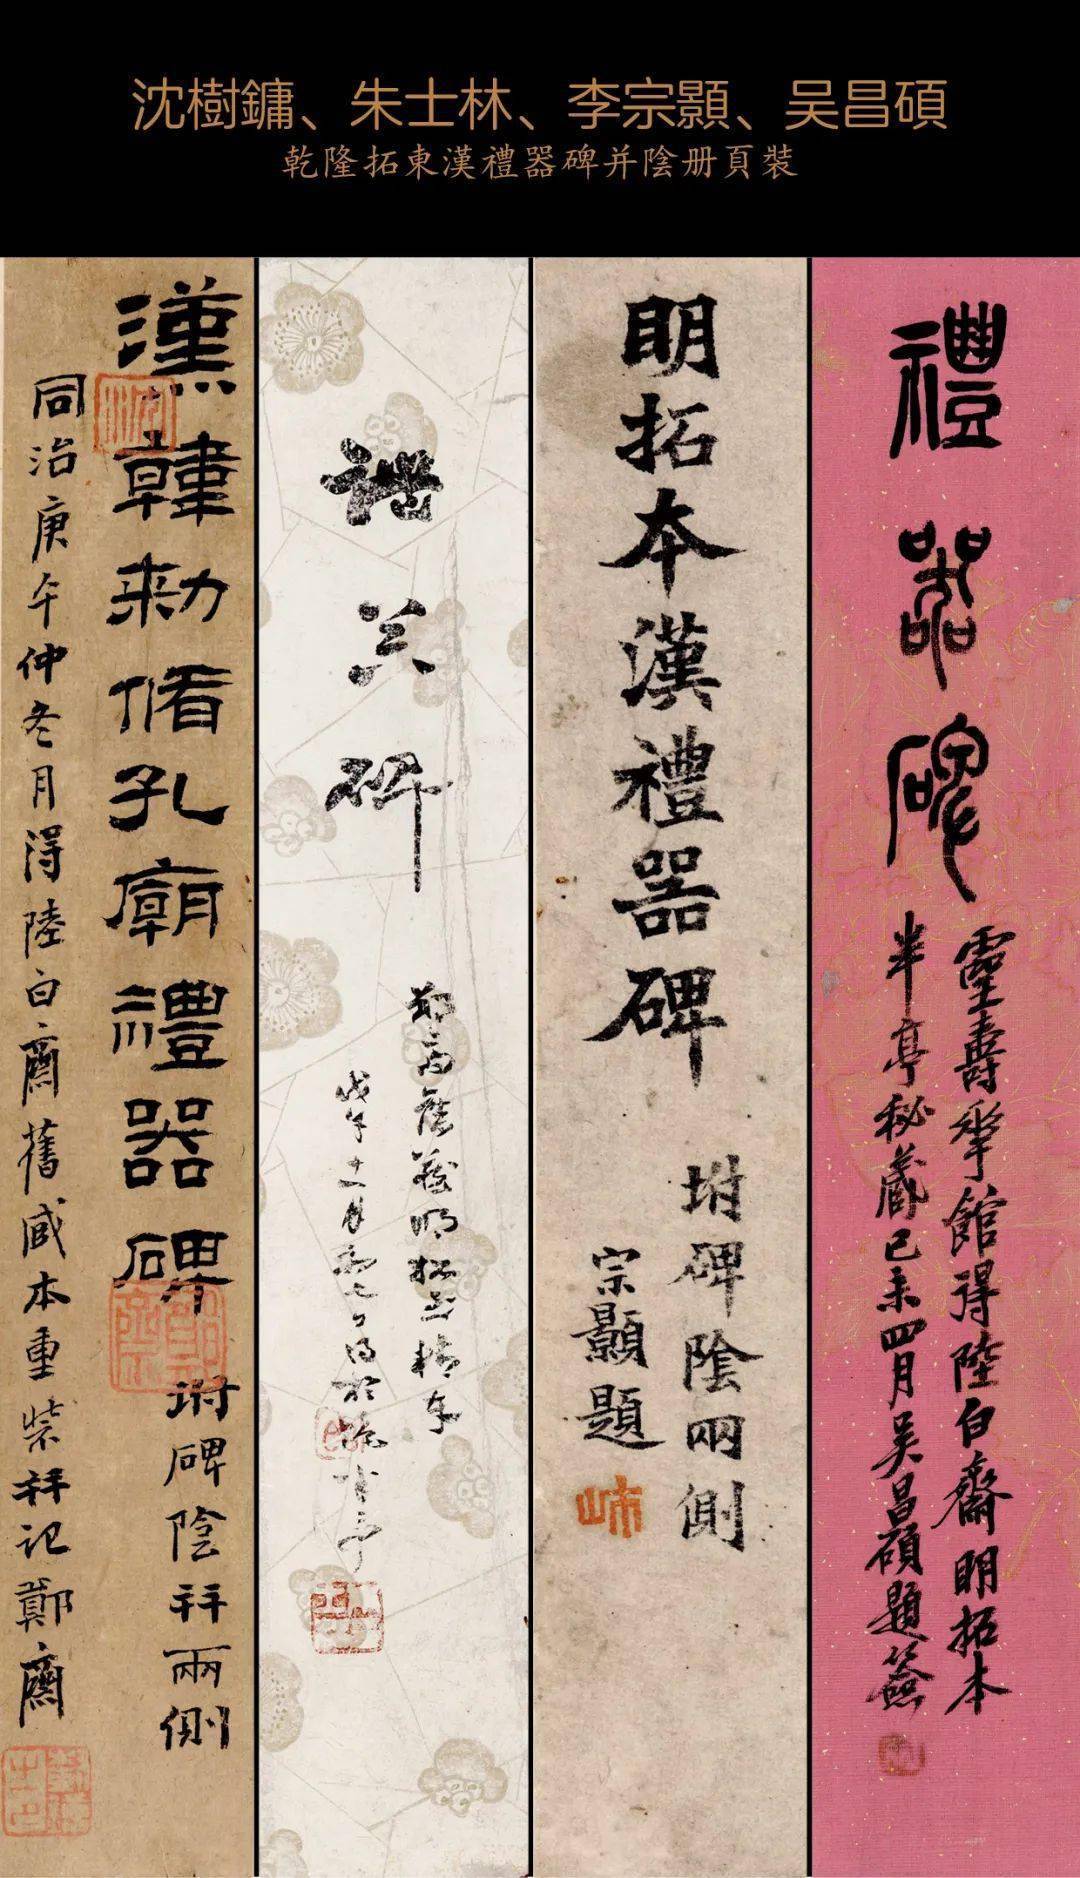 沈樹鏞、朱士林、李宗顥、吴昌碩
乾隆拓東漢禮器碑并陰册頁裝
漢韓勑脩孔廟禮器碑
坿碑陰并兩側
同治庚午仲冬月得陸白齋舊臧本重裝并記鄭齋
碑
鄭齋舊藏明拓最精本
戊午十一月初七日得於
明拓本漢禮器碑
坿碑陰兩側
宗顥題
禮器碑
靈壽華館得陸白齋明拓本
半亭秘藏己未四月吴昌碩題簽